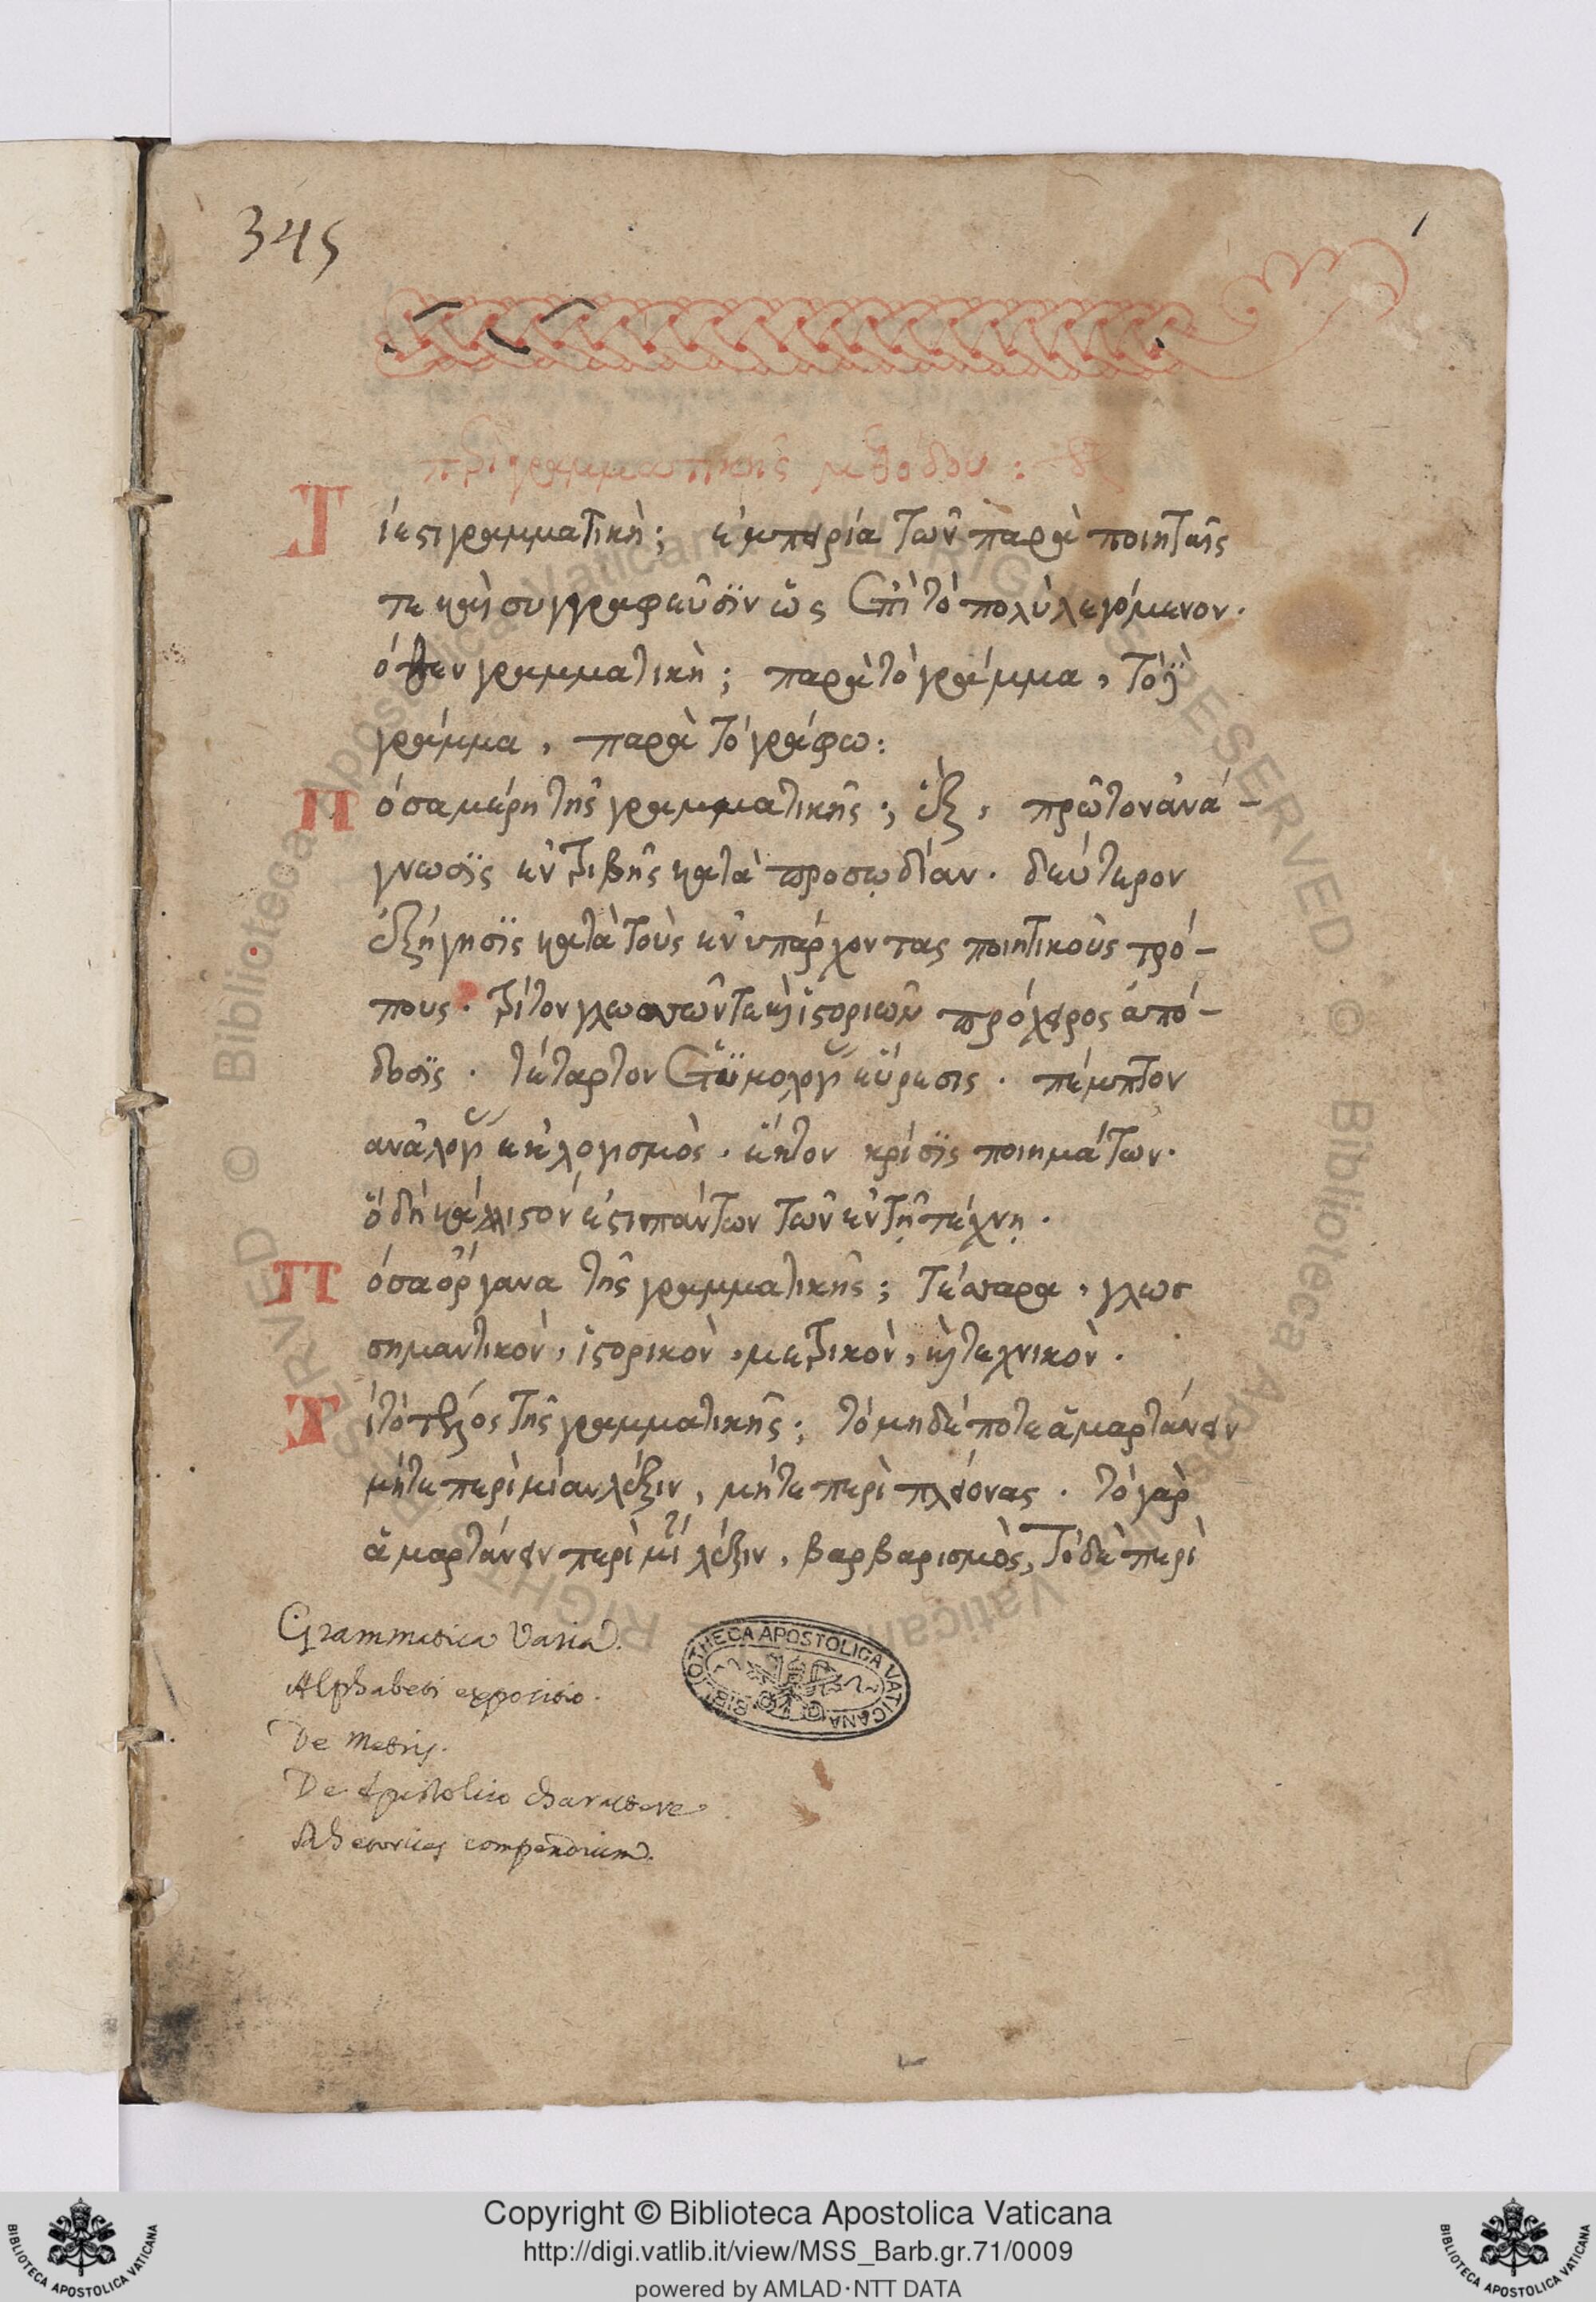 345
1
περὶ γραμματικῆς μεθόδου :
Τί ἐστι γραμματικὴ; ἐμπειρία τῶν παρὰ ποιηταῖς
τε καὶ συγγραφεῦσϊν ὡς ἐπὶ τὸ πολὺ λεγόμενον.
ὅθεν γραμματικὴ; παρὰ τὸ γράμμα, τὸ δὲ
γράμμα, παρὰ τὸ γράφω:
Πόσα μέρη τῆς γραμματικῆς; ἕξ, πρῶτον ἀνά-
γνωσϊς ἐν τριβῆς κατὰ προσῳδίαν. δεύτερον
ἐξήγησϊς κατὰ τοὺς ἐν υπάρχοντας ποιητικοὺς τρό-
πους. τρίτον γλωσσῶν τε καὶ ἱστοριῶν πρόχειρος ἀπό-
δοσϊς. τέταρτον ἐτϋμολογίας εὕρεσις. πέμπτον
αναλογίας ἐκλογισμὸς. ἕκτον κρίσϊς ποιημάτων.
ὃ δὴ κάλλιστόν ἐστι πάντων τῶν ἐν τῇ τέχνῃ.
Πόσα ὄργανα τῆς γραμματικῆς; τέσσαρα, γλωσ
σηματικὸν, ἱστορικὸν, μετρικὸν, καὶ τεχνικὸν.
Τί τὸ τέλος τῆς γραμματικῆς; τὸ μηδέποτε ἁμαρτάνειν
μήτε περὶ μίαν λέξιν, μήτε περὶ πλείονας. τὸ γὰρ
ἁμαρτάνειν περὶ μίαν λέξιν, βαρβαρισμὸς, τὸ δὲ περὶ
Grammatica varia.
Alphabeti expositio.
De metris.
De epistolico charactere
Rhetorices compendium.
BIBLIOTHECA APOSTOLICA VATICANA
Copyright © Biblioteca Apostolica Vaticana
http://digi.vatlib.it/view/MSS_Barb.gr.71/0009
powered by AMLAD·NTT DATA